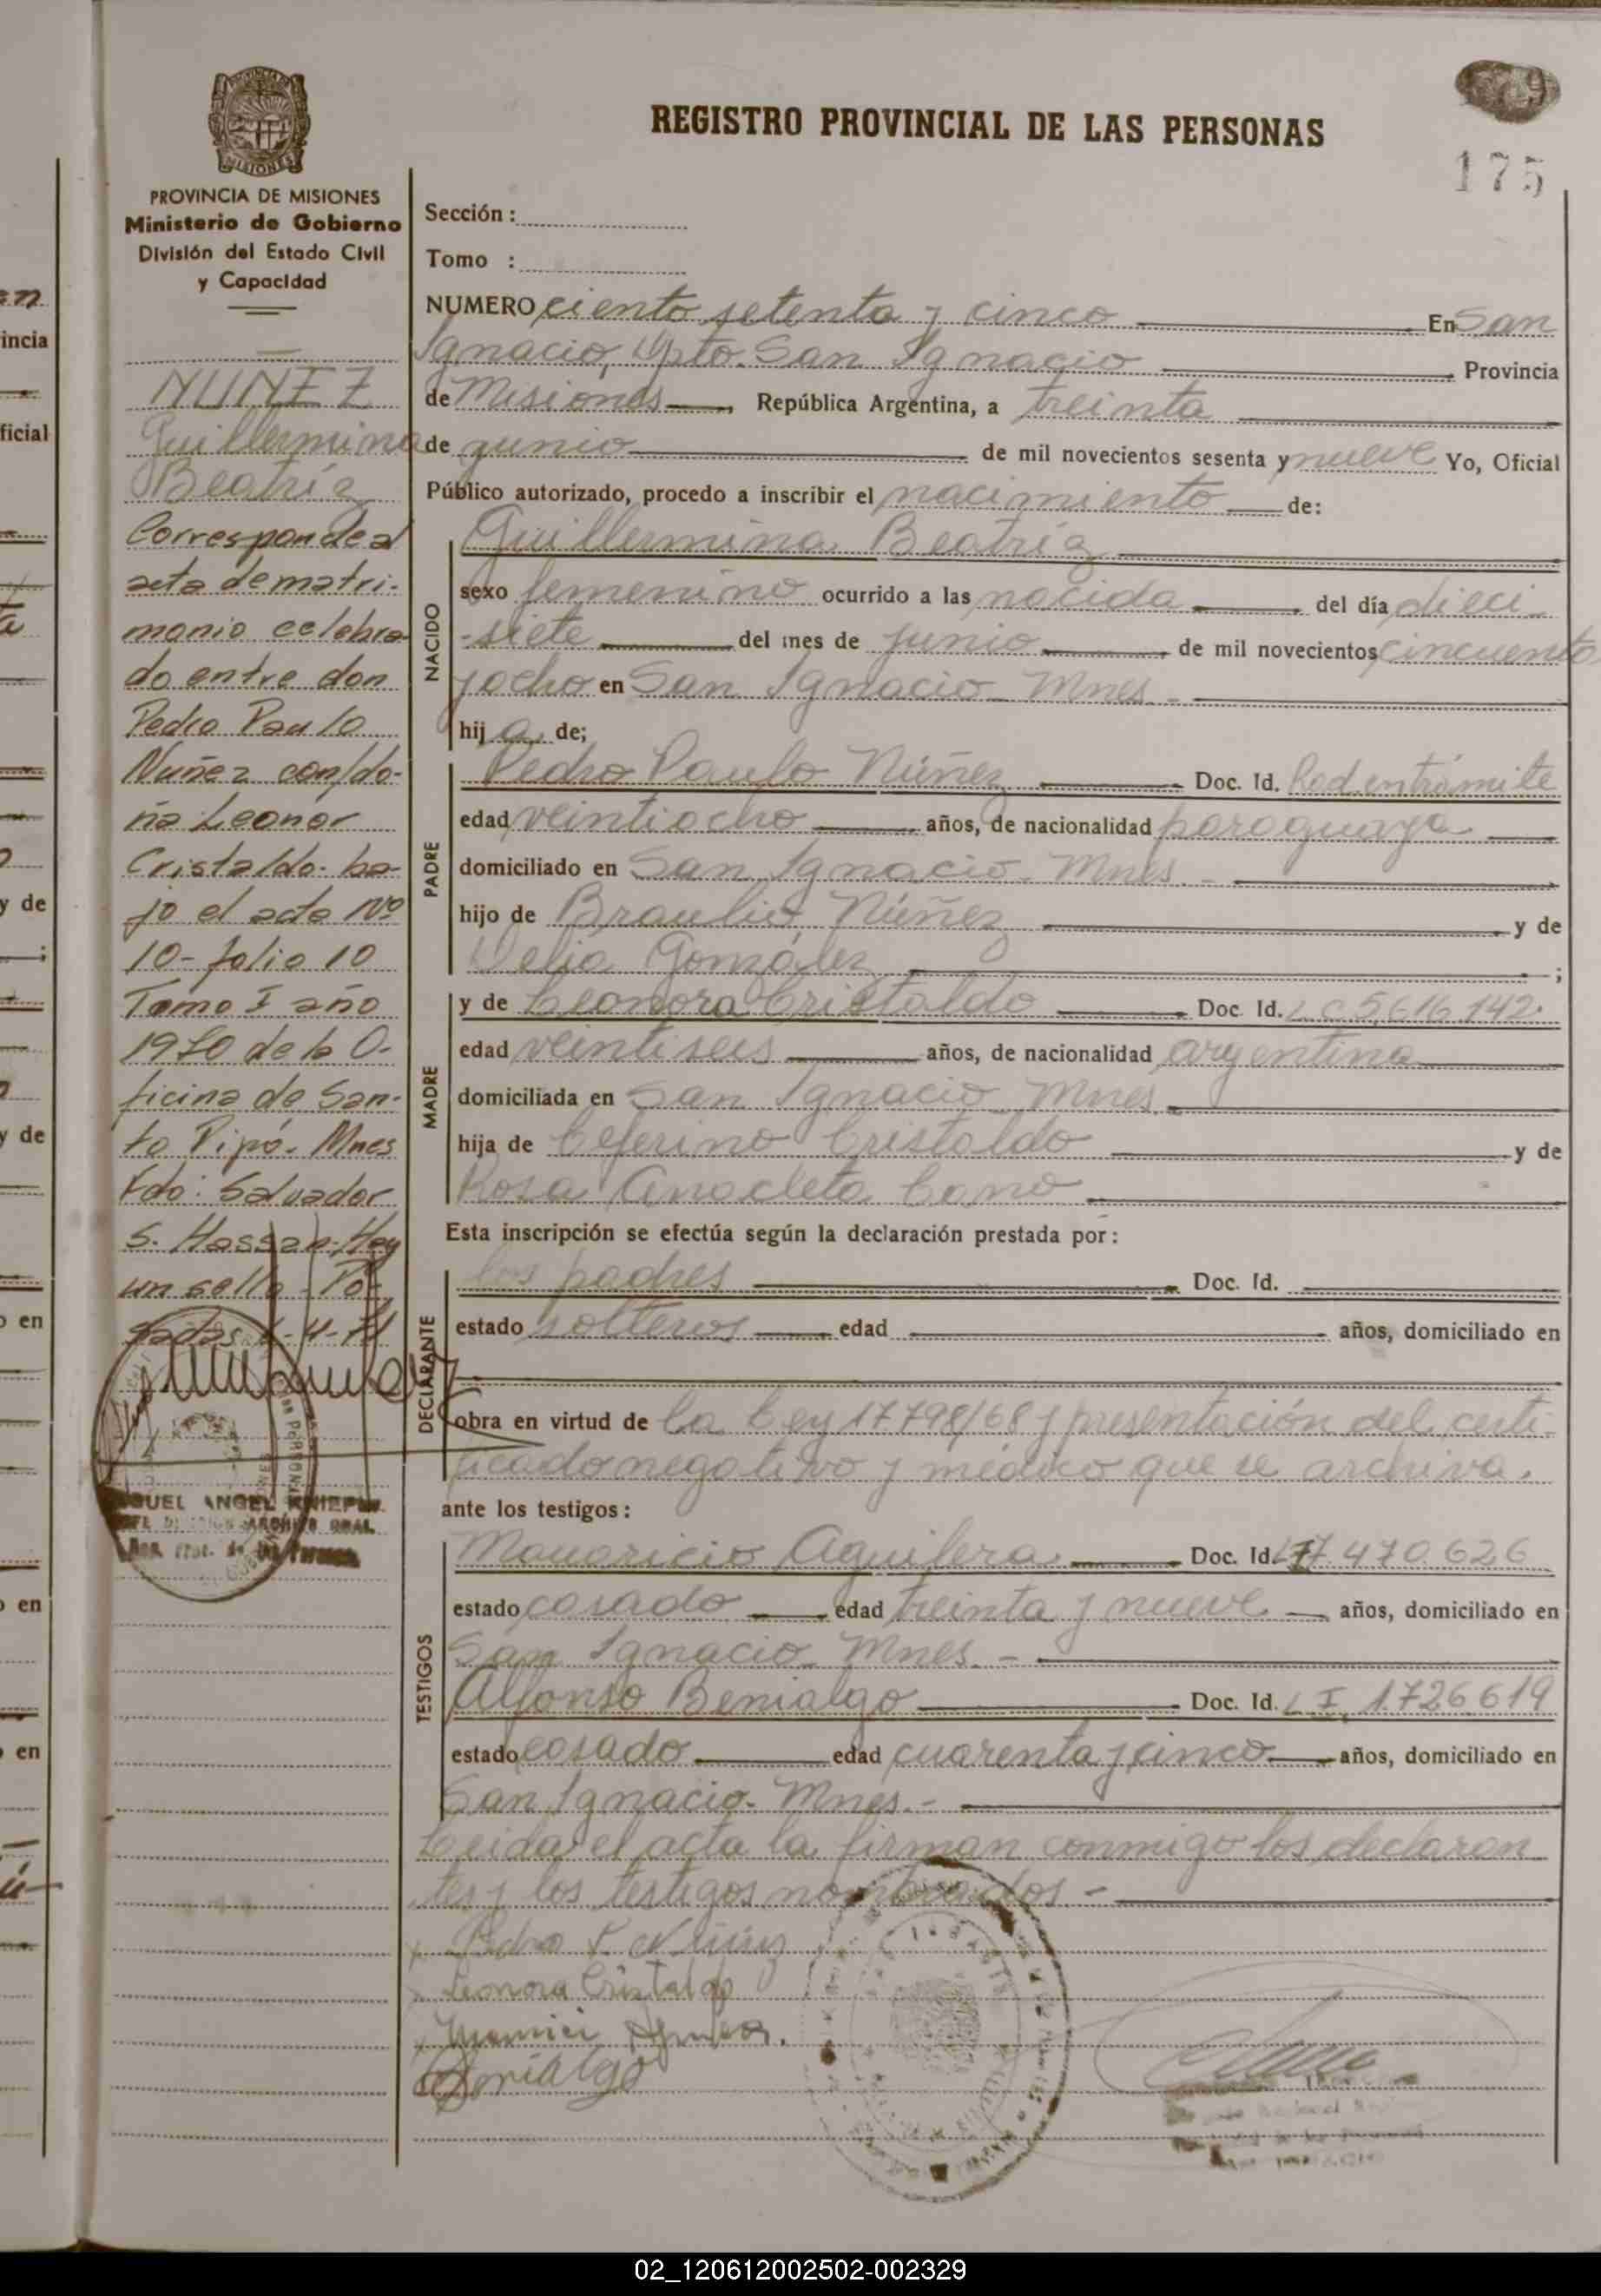 REGISTRO PROVINCIAL DE LAS PERSONAS
175
MISIONES
PROVINCIA DE MISIONES
Ministerio de Gobierno
División del Estado Civil
y Capacidad
NUÑEZ
Guillermina
Beatríz
Corresponde al
acta de matri-
monio celebra-
do entre don
Pedro Paulo
Nuñez con/do-
ña Leonor
Cristaldo. ba-
jo el acta Nº
10- folio 10
Tomo I año
1970 de la O-
ficina de San-
to Pipó- Mnes
Fdo: Salvador
S. Hassan-Hay
un sello - Po-
sadas
MIGUEL ANGEL KNIEPP
Sección :
Tomo :
NUMERO ciento setenta y cinco En San
Ignacio, Dpto. San Ignacio Provincia
de Misiones, República Argentina, a treinta
de junio de mil novecientos sesenta y nueve Yo, Oficial
Público autorizado, procedo a inscribir el nacimiento de:
NACIDO
Guillermina Beatríz
sexo femenino ocurrido a las nacida del día dieci-
-siete del mes de junio de mil novecientos cincuenta
y ocho en San Ignacio Mnes.-
hija de;
PADRE
Pedro Paulo Núñez Doc. Id. Rad. en trámite
edad veintiocho años, de nacionalidad paraguaya
domiciliado en San Ignacio- Mnes.-
hijo de Braulio Núñez y de
Delia González ;
MADRE
y de Leonora Cristaldo Doc. Id. LC 5,616,142.
edad veintiseis años, de nacionalidad argentina
domiciliada en San Ignacio Mnes.
hija de Ceferino Cristaldo y de
Rosa Anacleta Cano
Esta inscripción se efectúa según la declaración prestada por:
DECLARANTE
los padres Doc. Id.
estado solteros edad años, domiciliado en
obra en virtud de la Ley 17798/68 y presentación del certi-
ficado negativo y médico que se archiva.
ante los testigos:
TESTIGOS
Mauricio Aguilera Doc. Id. 7.470.626
estado casado edad treinta y nueve años, domiciliado en
San Ignacio- Mnes.-
Alfonso Benialgo Doc. Id. L I 1.726.619
estado casado edad cuarenta y cinco años, domiciliado en
San Ignacio- Mnes.-
Leida el acta la firman conmigo los declaran-
tes y los testigos nombrados.-
Pedro P. Núñez
Leonora Cristaldo
Benialgo
02_120612002502-002329